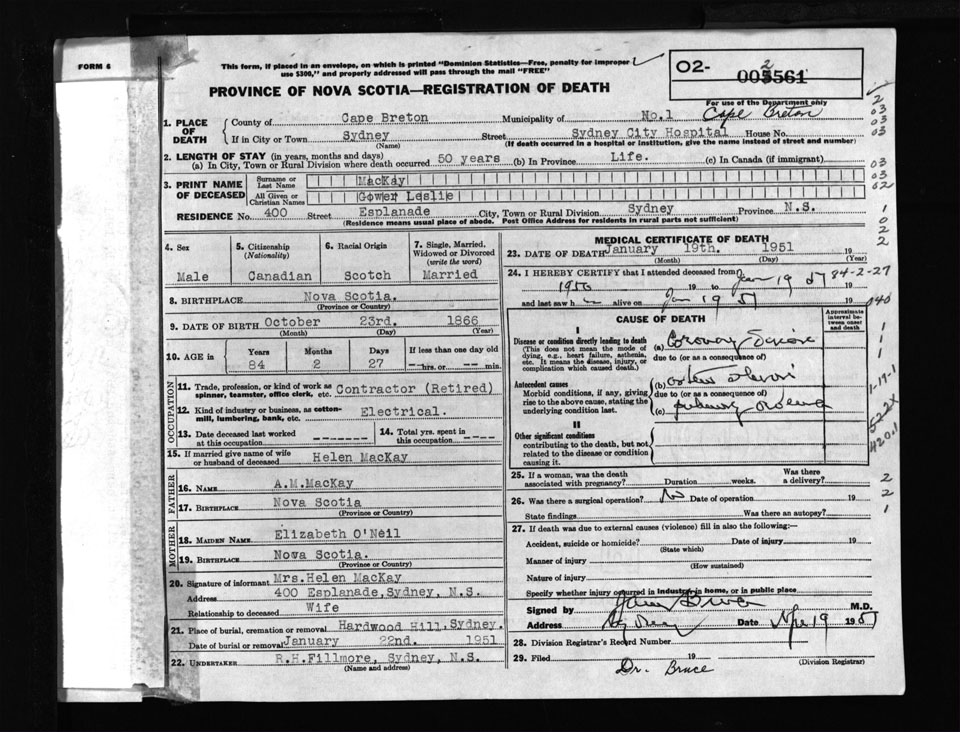 FORM 6
This form, if placed in an envelope, on which is printed "Dominion Statistics—Free, penalty for improper
use $300," and properly addressed will pass through the mail "FREE"
PROVINCE OF NOVA SCOTIA—REGISTRATION OF DEATH
O2- 2
005561
For use of the Department only
1. PLACE OF DEATH
County of Cape Breton Municipality of No.1 Cape Breton
If in City or Town Sydney Street Sydney City Hospital House No.
(Name) (If death occurred in a hospital or institution, give the name instead of street and number)
2. LENGTH OF STAY (in years, months and days)
(a) In City, Town or Rural Division where death occurred 50 years (b) In Province Life. (c) In Canada (if immigrant)
3. PRINT NAME OF DECEASED
Surname or Last Name MacKay
All Given or Christian Names Gower Leslie
RESIDENCE No. 400 Street Esplanade City, Town or Rural Division Sydney Province N.S.
(Residence means usual place of abode. Post Office Address for residents in rural parts not sufficient)
2
03
03
03
03
02
1
0
2
2
4. Sex
Male
5. Citizenship
(Nationality)
Canadian
6. Racial Origin
Scotch
7. Single, Married,
Widowed or Divorced
(write the word)
Married
8. BIRTHPLACE Nova Scotia.
(Province or Country)
9. DATE OF BIRTH October 23rd. 1866
(Month) (Day) (Year)
10. AGE in
Years Months Days If less than one day old
84 2 27 --hrs. or -- min.
OCCUPATION
11. Trade, profession, or kind of work as
spinner, teamster, office clerk, etc. Contractor (Retired)
12. Kind of industry or business, as cotton-
mill, lumbering, bank, etc. Electrical.
13. Date deceased last worked
at this occupation -------
14. Total yrs. spent in
this occupation ----
15. If married give name of wife
or husband of deceased Helen MacKay
FATHER
16. NAME A.M.MacKay
17. BIRTHPLACE Nova Scotia
(Province or Country)
MOTHER
18. MAIDEN NAME Elizabeth O'Neil
19. BIRTHPLACE Nova Scotia.
(Province or Country)
20. Signature of informant Mrs.Helen MacKay
Address 400 Esplanade,Sydney, N.S.
Relationship to deceased Wife
21. Place of burial, cremation or removal Hardwood Hill,Sydney.
Date of burial or removal January 22nd. 1951
22. UNDERTAKER R.H.Fillmore, Sydney, N.S.
(Name and address)
MEDICAL CERTIFICATE OF DEATH
23. DATE OF DEATH January 19th. 1951 19
(Month) (Day) (Year)
24. I HEREBY CERTIFY that I attended deceased from
1950 19 to Jan 19 51 84-2-27
and last saw h im alive on Jan 19 51 19
CAUSE OF DEATH
Approximate
interval be-
tween onset
and death
I
Disease or condition directly leading to death
(This does not mean the mode of
dying, e.g., heart failure, asthenia,
etc. It means the disease, injury, or
complication which caused death.)
(a) Coronary
due to (or as a consequence of)
Antecedent causes
Morbid conditions, if any, giving
rise to the above cause, stating the
underlying condition last.
(b)
due to (or as a consequence of)
(c)
II
Other significant conditions
contributing to the death, but not
related to the disease or condition
causing it.
1
1
1
1-19-1
522X
420.1
25. If a woman, was the death
associated with pregnancy? Duration weeks. Was there
a delivery?
26. Was there a surgical operation? No Date of operation 19
State findings Was there an autopsy?
2
2
1
27. If death was due to external causes (violence) fill in also the following:—
Accident, suicide or homicide? Date of injury 19
(State which)
Manner of injury
(How sustained)
Nature of injury
Specify whether injury occurred in industry, in home, or in public place
Signed by Bruce M.D.
Address Sydney Date 19 1951
28. Division Registrar's Record Number
29. Filed 19
(Division Registrar)
Dr. Bruce